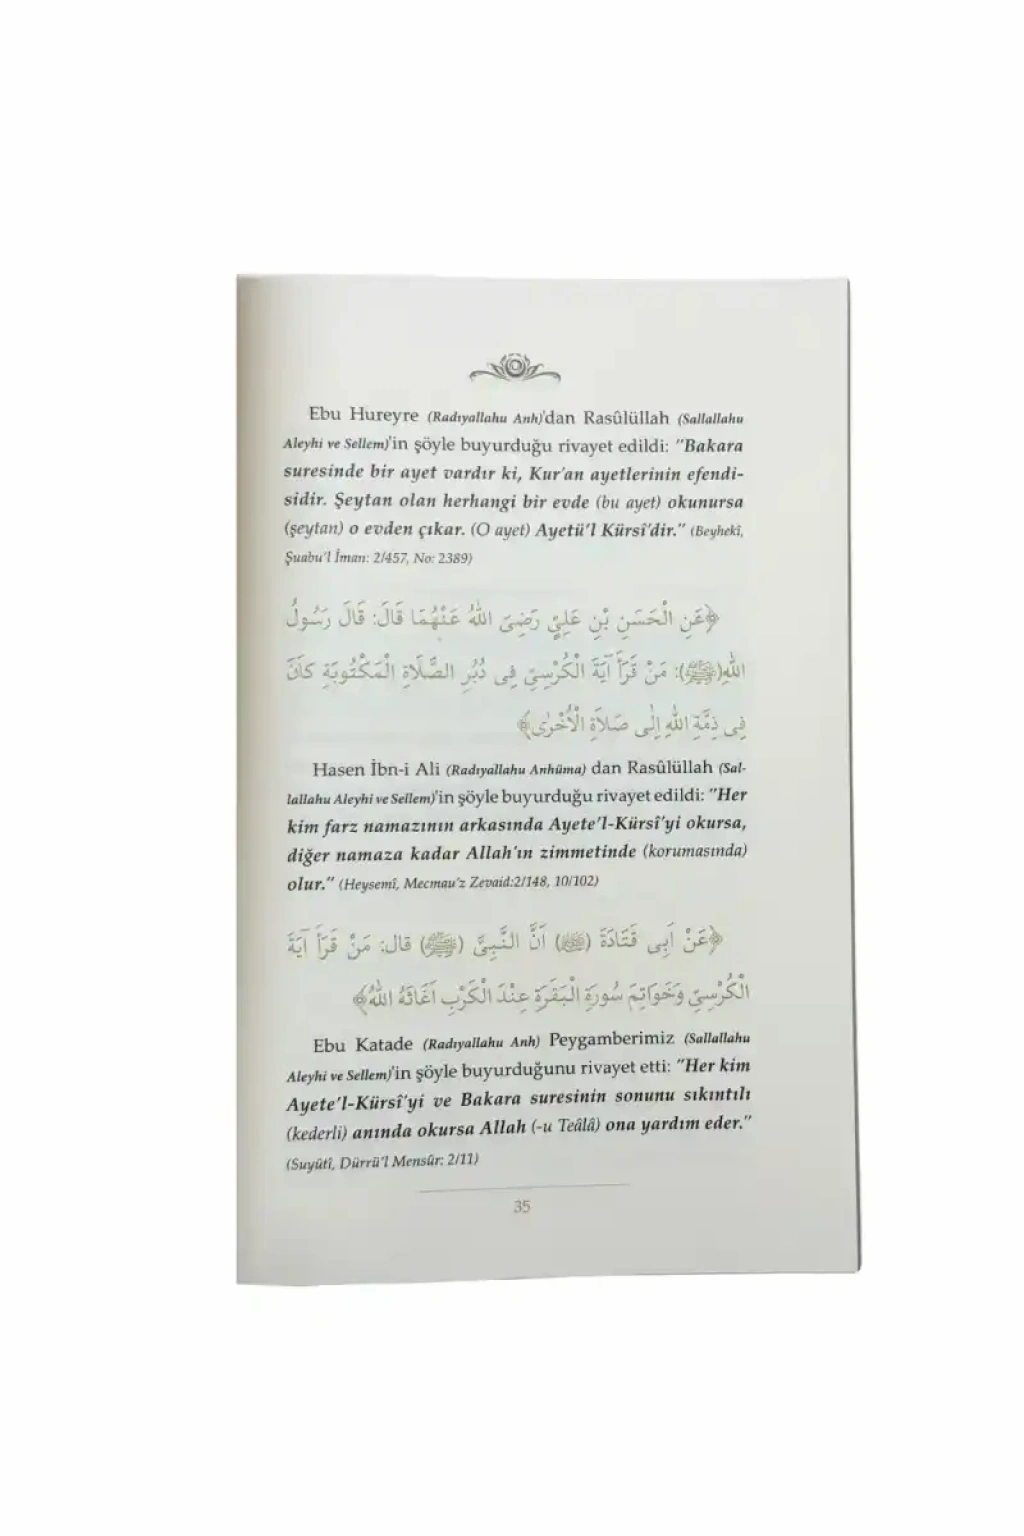 Ebu Hureyre (Radıyallahu Anh)'dan Rasûlüllah (Sallallahu
Aleyhi ve Sellem)'in şöyle buyurduğu rivayet edildi: "Bakara
suresinde bir ayet vardır ki, Kur'an ayetlerinin efendi-
sidir. Şeytan olan herhangi bir evde (bu ayet) okunursa
(şeytan) o evden çıkar. (O ayet) Ayetü'l Kürsî'dir." (Beyhekî,
Şuabu'l İman: 2/457, No: 2389)
﴿عَنِ الْحَسَنِ بْنِ عَلِيٍّ رَضِيَ اللهُ عَنْهُمَا قَالَ: قَالَ رَسُولُ
اللهِ(ﷺ): مَنْ قَرَأَ آيَةَ الْكُرْسِيِّ فِى دُبُرِ الصَّلَاةِ الْمَكْتُوبَةِ كَانَ
فِى ذِمَّةِ اللهِ إِلَى صَلَاةِ الْأُخْرَى﴾
Hasen İbn-i Ali (Radıyallahu Anhüma) dan Rasûlüllah (Sal-
lallahu Aleyhi ve Sellem)'in şöyle buyurduğu rivayet edildi: "Her
kim farz namazının arkasında Ayete'l-Kürsî'yi okursa,
diğer namaza kadar Allah'ın zimmetinde (korumasında)
olur." (Heysemî, Mecmau'z Zevaid:2/148, 10/102)
﴿عَنْ اَبِى قَتَادَةَ (رضي الله عنه) اَنَّ النَّبِيَّ (ﷺ) قال: مَنْ قَرَأَ آيَةَ
الْكُرْسِيِّ وَخَوَاتِمَ سُورَةِ الْبَقَرَةِ عِنْدَ الْكَرْبِ اَغَاثَهُ اللهُ﴾
Ebu Katade (Radıyallahu Anh) Peygamberimiz (Sallallahu
Aleyhi ve Sellem)'in şöyle buyurduğunu rivayet etti: "Her kim
Ayete'l-Kürsî'yi ve Bakara suresinin sonunu sıkıntılı
(kederli) anında okursa Allah (-u Teâlâ) ona yardım eder."
(Suyûtî, Dürrü'l Mensûr: 2/11)
35